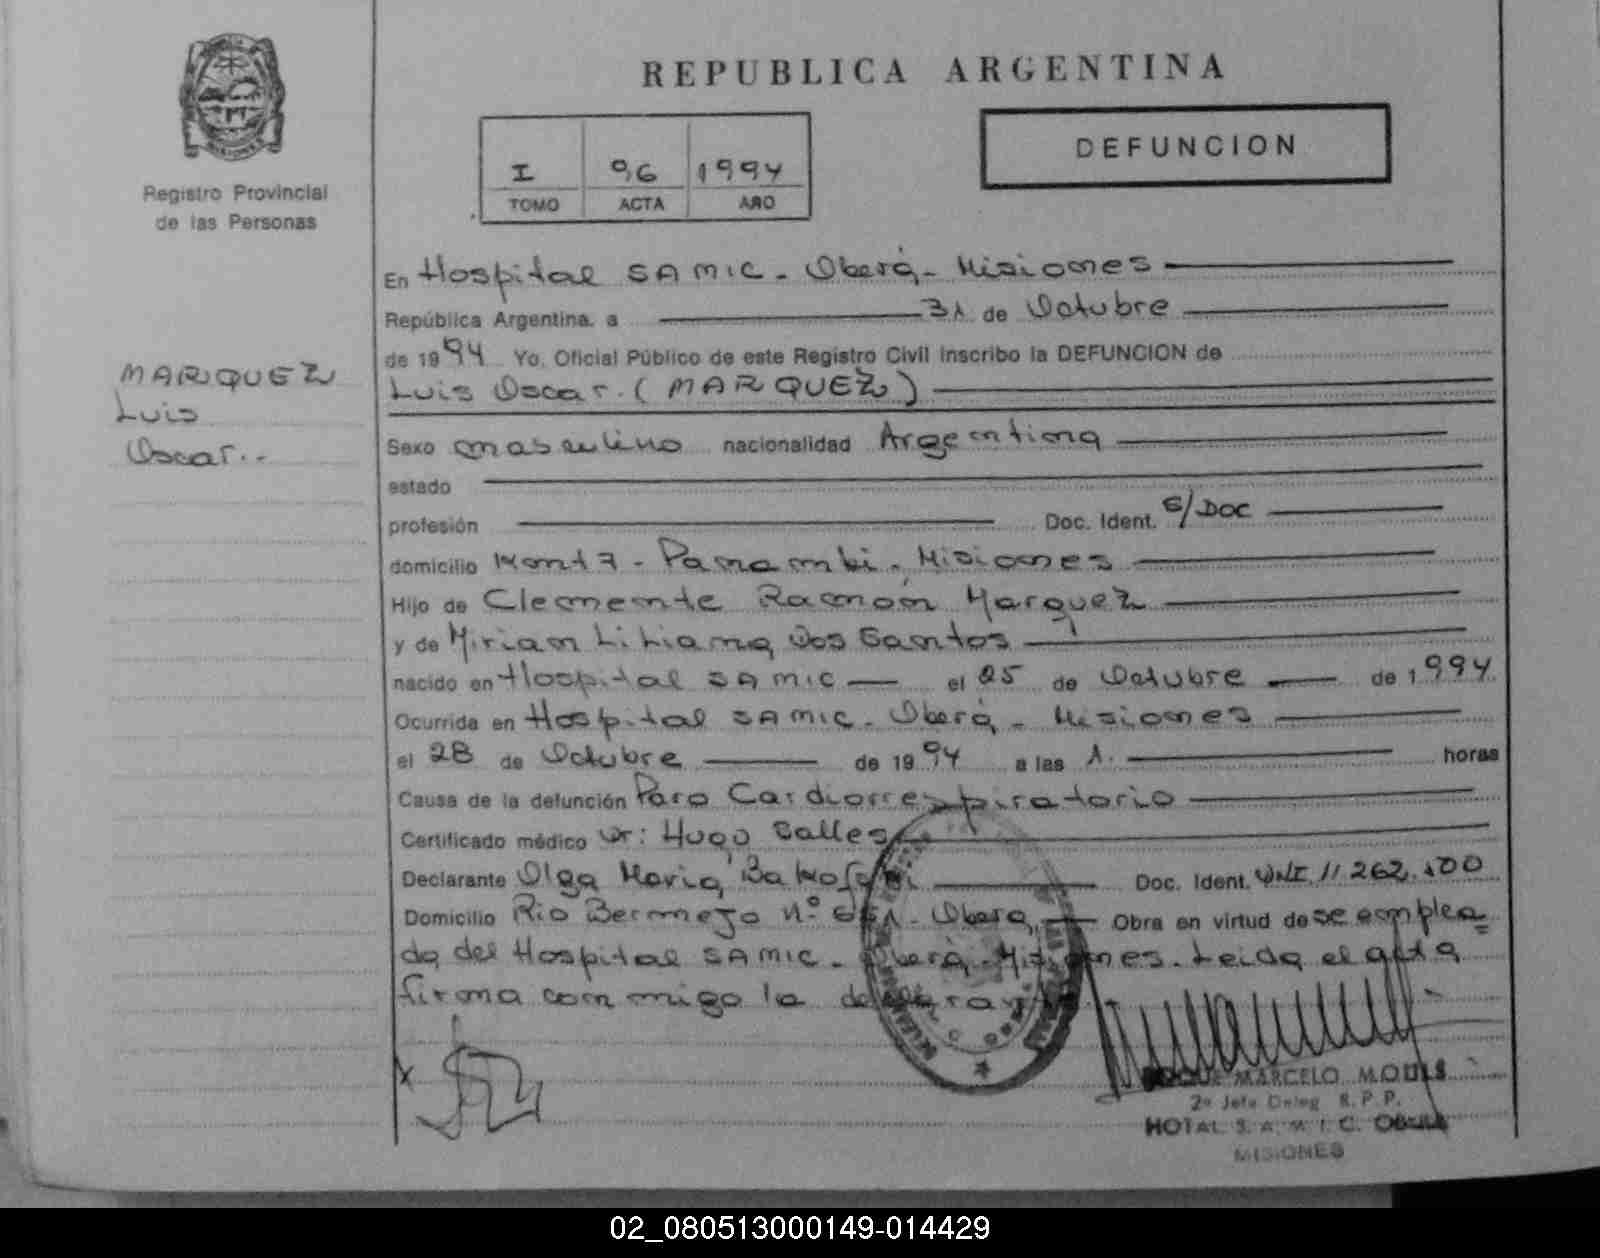 REPUBLICA ARGENTINA
MISIONES
Registro Provincial
de las Personas
I 96 1994
TOMO ACTA AÑO
DEFUNCION
MARQUEZ
Luis
Oscar..
En Hospital SAMIC - Oberá - Misiones
República Argentina, a 31 de Octubre
de 1994 Yo, Oficial Público de este Registro Civil inscribo la DEFUNCION de
Luis Oscar. (MARQUEZ)
Sexo masculino nacionalidad Argentina
estado
profesión Doc. Ident. S/DOC
domicilio Panambi - Misiones
Hijo de Clemente Ramón Marquez
y de Mirian Liliana Dos Santos
nacido en Hospital SAMIC el 25 de Octubre de 1994
Ocurrida en Hospital SAMIC - Oberá - Misiones
el 28 de Octubre de 1994 a las 1. horas
Causa de la defunción Paro Cardiorrespiratorio
Certificado médico Dr: Hugo
Declarante Olga Maria Doc. Ident. DNI 11.262.
Domicilio Rio Bermejo Nº Oberá Obra en virtud de se emplea
da del Hospital SAMIC - Oberá - Misiones. Leida el acta
firma conmigo la declarante
X
ROQUE MARCELO
2º Jefe Deleg. R.P.P.
HOTAL S.A.M.I.C. OBERA
MISIONES
02_080513000149-014429